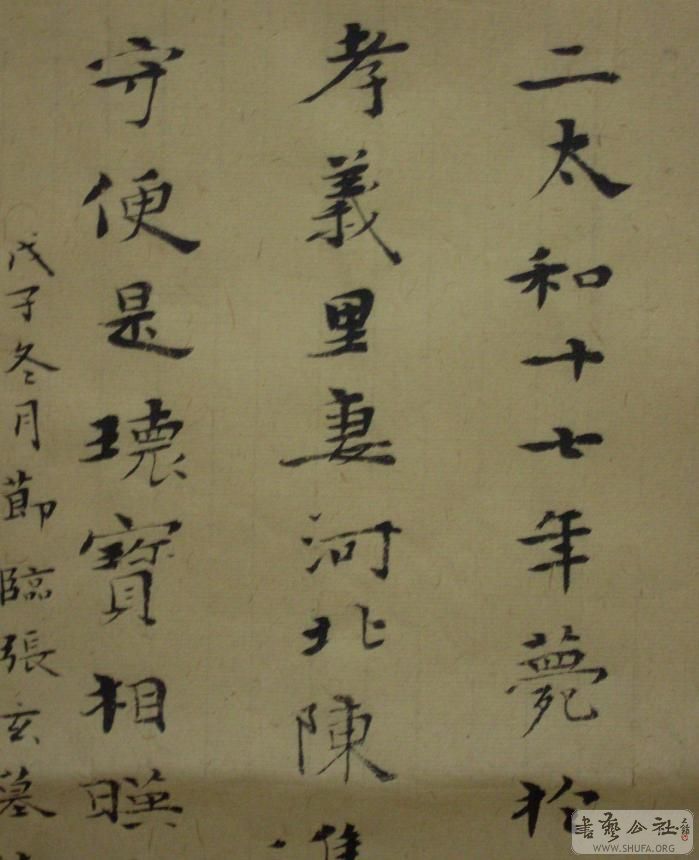 二太和十七年薨扵
孝義里妻河北陳進
守便是瓌寳相暎
戊子冬月節臨張玄墓
書藝公社
WWW.SHUFA.ORG